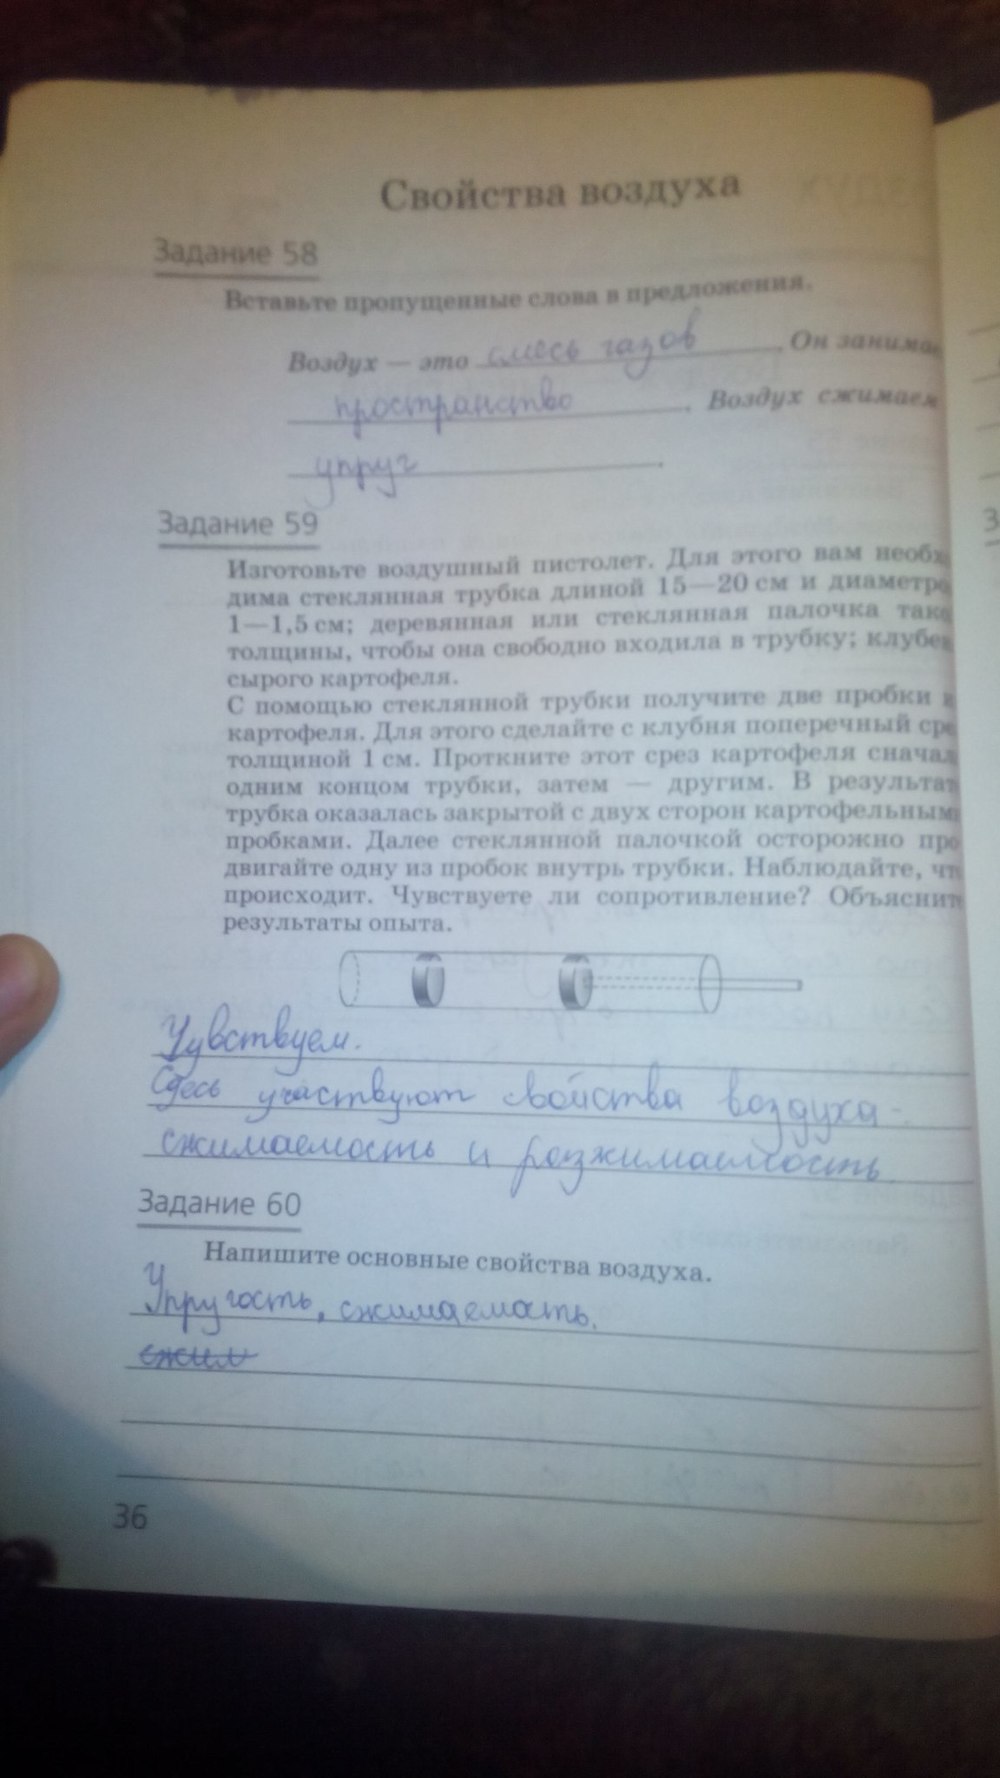 Свойства воздуха
Задание 58
Вставьте пропущенные слова в предложения.
Воздух — это смесь газов. Он занима
пространство. Воздух сжимаем
упруг.
Задание 59
Изготовьте воздушный пистолет. Для этого вам необх
дима стеклянная трубка длиной 15—20 см и диаметро
1—1,5 см; деревянная или стеклянная палочка тако
толщины, чтобы она свободно входила в трубку; клубен
сырого картофеля.
С помощью стеклянной трубки получите две пробки и
картофеля. Для этого сделайте с клубня поперечный сре
толщиной 1 см. Проткните этот срез картофеля сначал
одним концом трубки, затем — другим. В результат
трубка оказалась закрытой с двух сторон картофельным
пробками. Далее стеклянной палочкой осторожно про
двигайте одну из пробок внутрь трубки. Наблюдайте, чт
происходит. Чувствуете ли сопротивление? Объяснит
результаты опыта.
Чувствуем.
Сдесь участвуют свойства воздуха -
сжимаемость и розжимаемость.
Задание 60
Напишите основные свойства воздуха.
Упругость, сжимаемость.
сжим
36
З